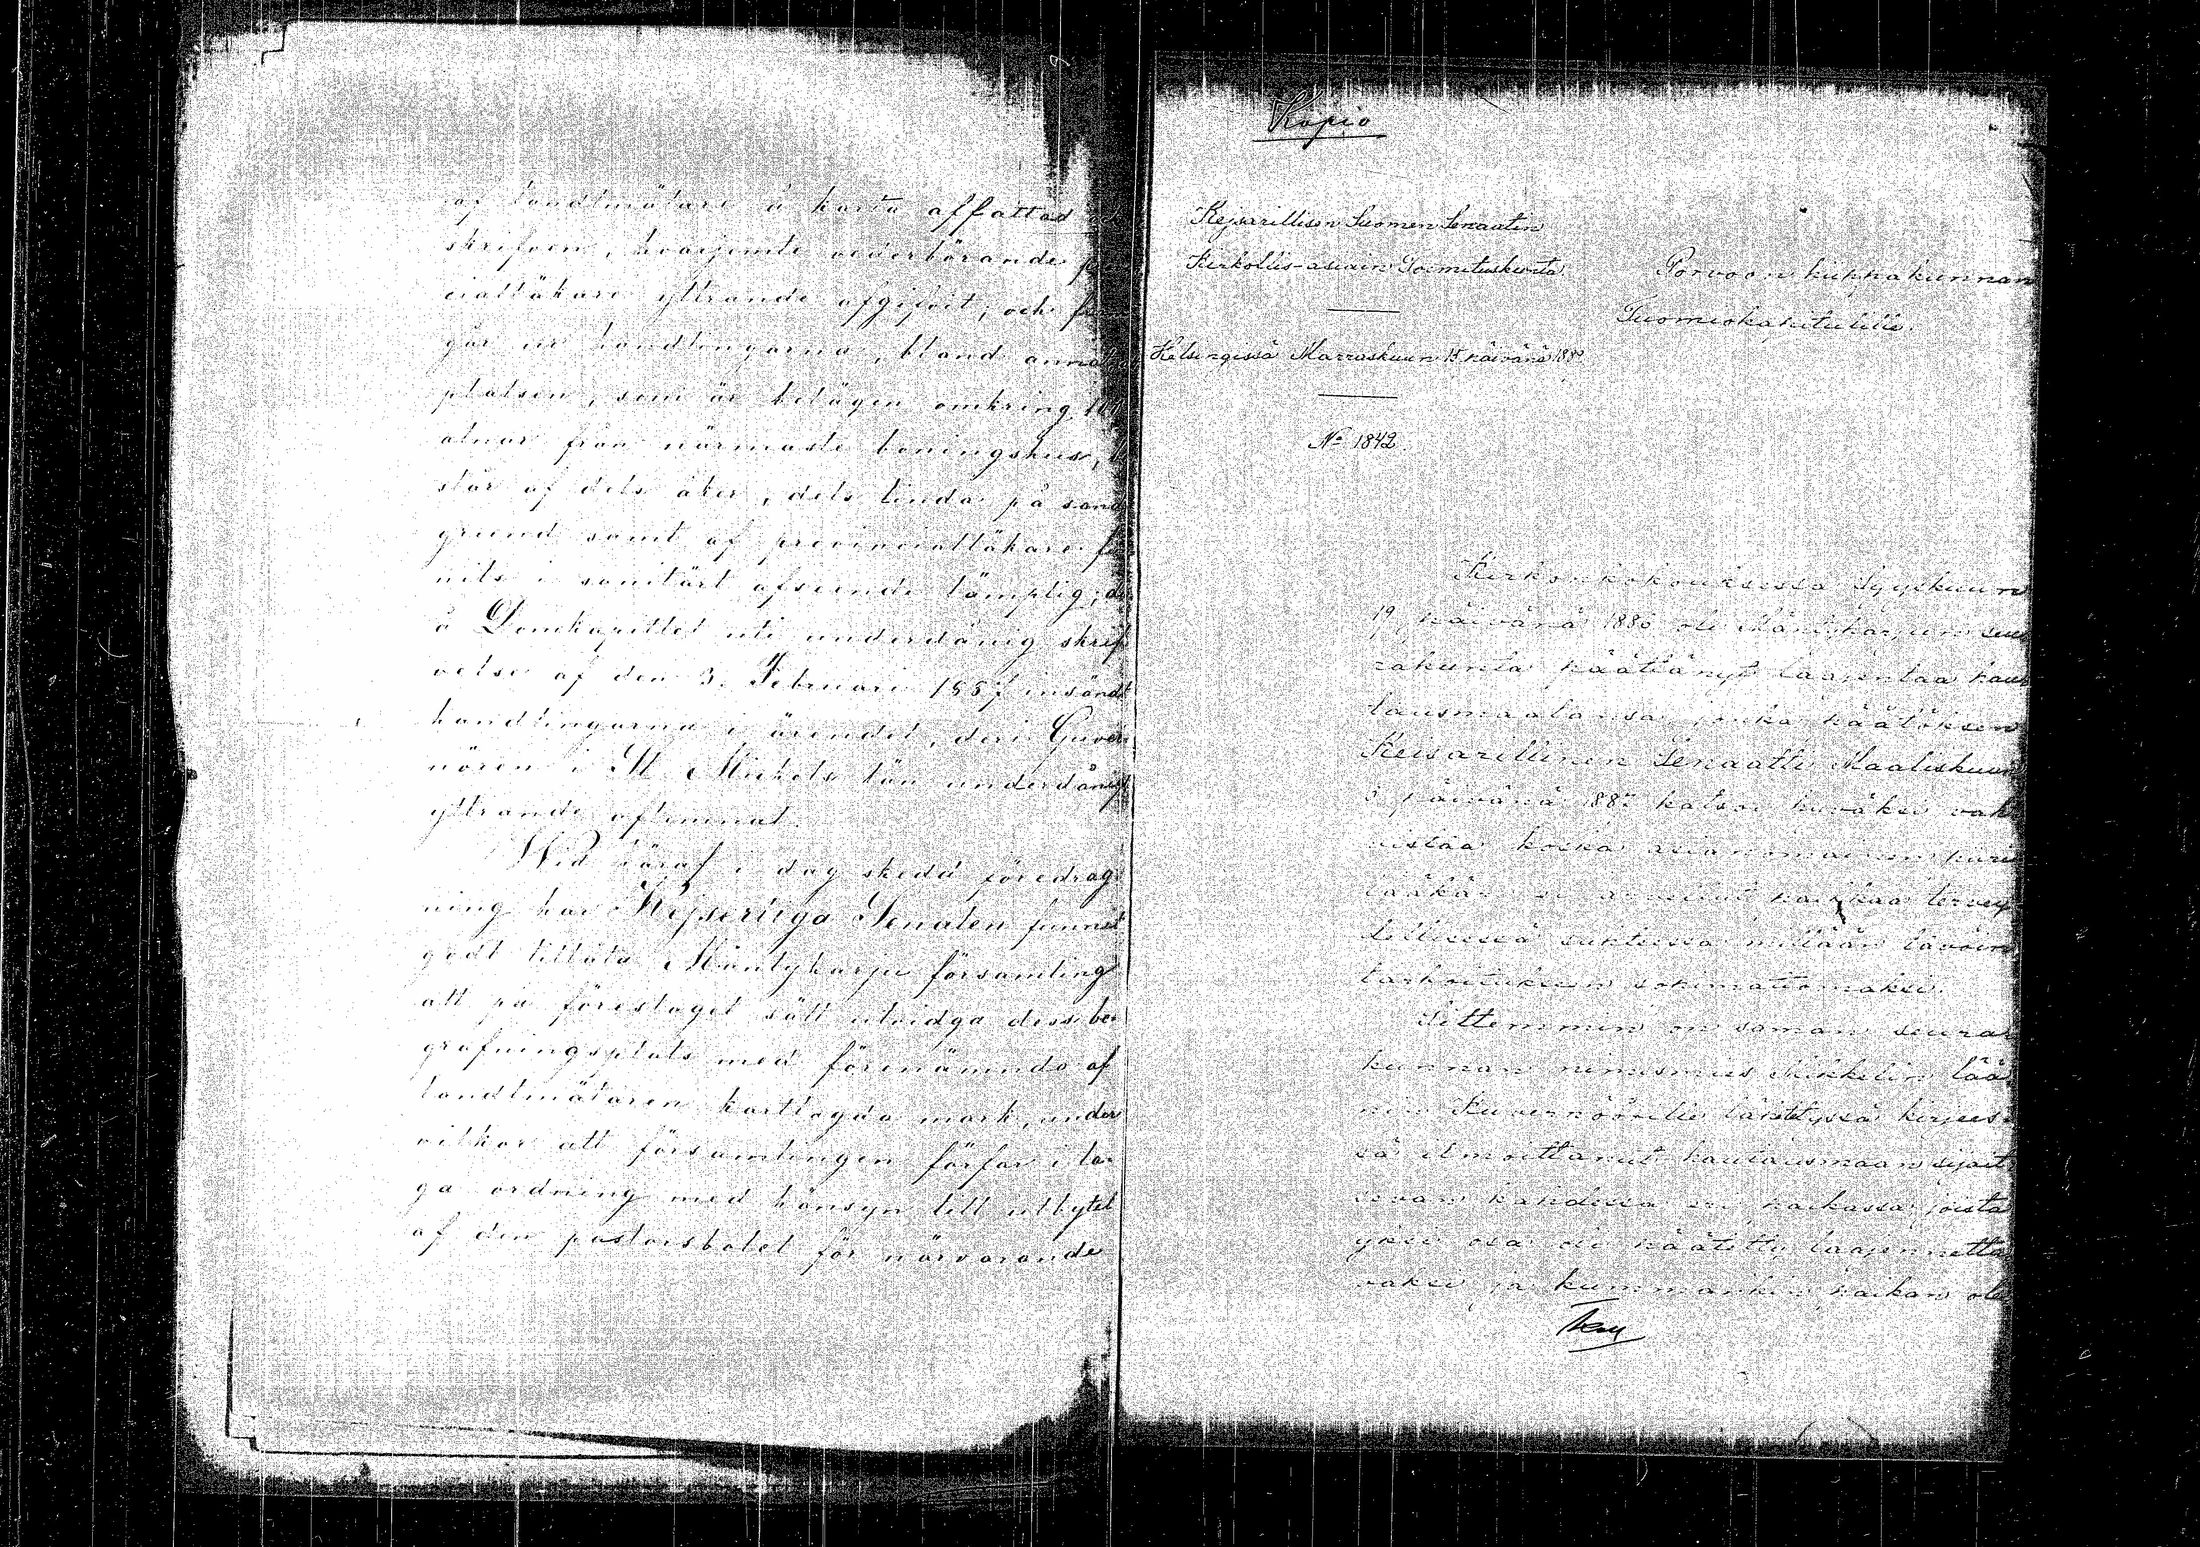 af landtmätare å karta affattad och
skrifven, hvarjemte vederbörande
cialläkare yttrande afgifvit; och
går ur handlingarna, bland annat
platsen, som är belägen omkring
alnar från närmaste boningshus,
står af dels åker, dels linda på sand
grund samt af provincialläkare
nits i sanitärt afseende lämplig;
å Domkapitlet uti underdånig skrif
velse af den 3. Februari 1887 insändt
handlingarna i ärendet, deri Guver
nören i St Michels län underdånigt
yttrande aflemnat.
Wid häraf i dag skedd föredrag
ning har Kejserliga Senaten funnit
godt tillåta Mäntyharju församling
att på föreslaget sätt utvidga dess be-
grafningsplats med förenämnda af
landtmätaren kartlagda mark, under
vilkor att församlingen förfar i la-
ga ordning med hänsyn till utbytet
af den pastorsbolet för närvarande
Kopio
Kejsarillisen Suomen Senaatin
Kirkollis-asiain Toimituskunta
Helsingissä Marraskuun 15 päivänä 1889
No 1842.
Porvoon hiippakunnan
Tuomiokapitulille.
Kirkonkokouksessa Syyskuun
19 päivänä 1886 oli Mäntyharjun seu
rakunta päättänyt laajentaa hau
tausmaatansa, jonka päätöksen
Keisarillinen Senaatti Maaliskuun
3 päivänä 1887 katsoi hyväksi vah
vistaa koska asianomainen piiri
lääkäri ei arvellut paikkaa tervey
dellisessä suhteessa millään tavoin
tarkoitukseen sopimattomaksi.
Sittemmin on saman seura
kunnan nimismies Mikkelin lää
nin Kuvernöörille lähetetyssä kirjees-
sä ilmoittanut hautausmaan sijait
sevan kahdessa eri paikassa joista
yksi osa oli päätetty laajennetta
vaksi ja kummankin paikan ole